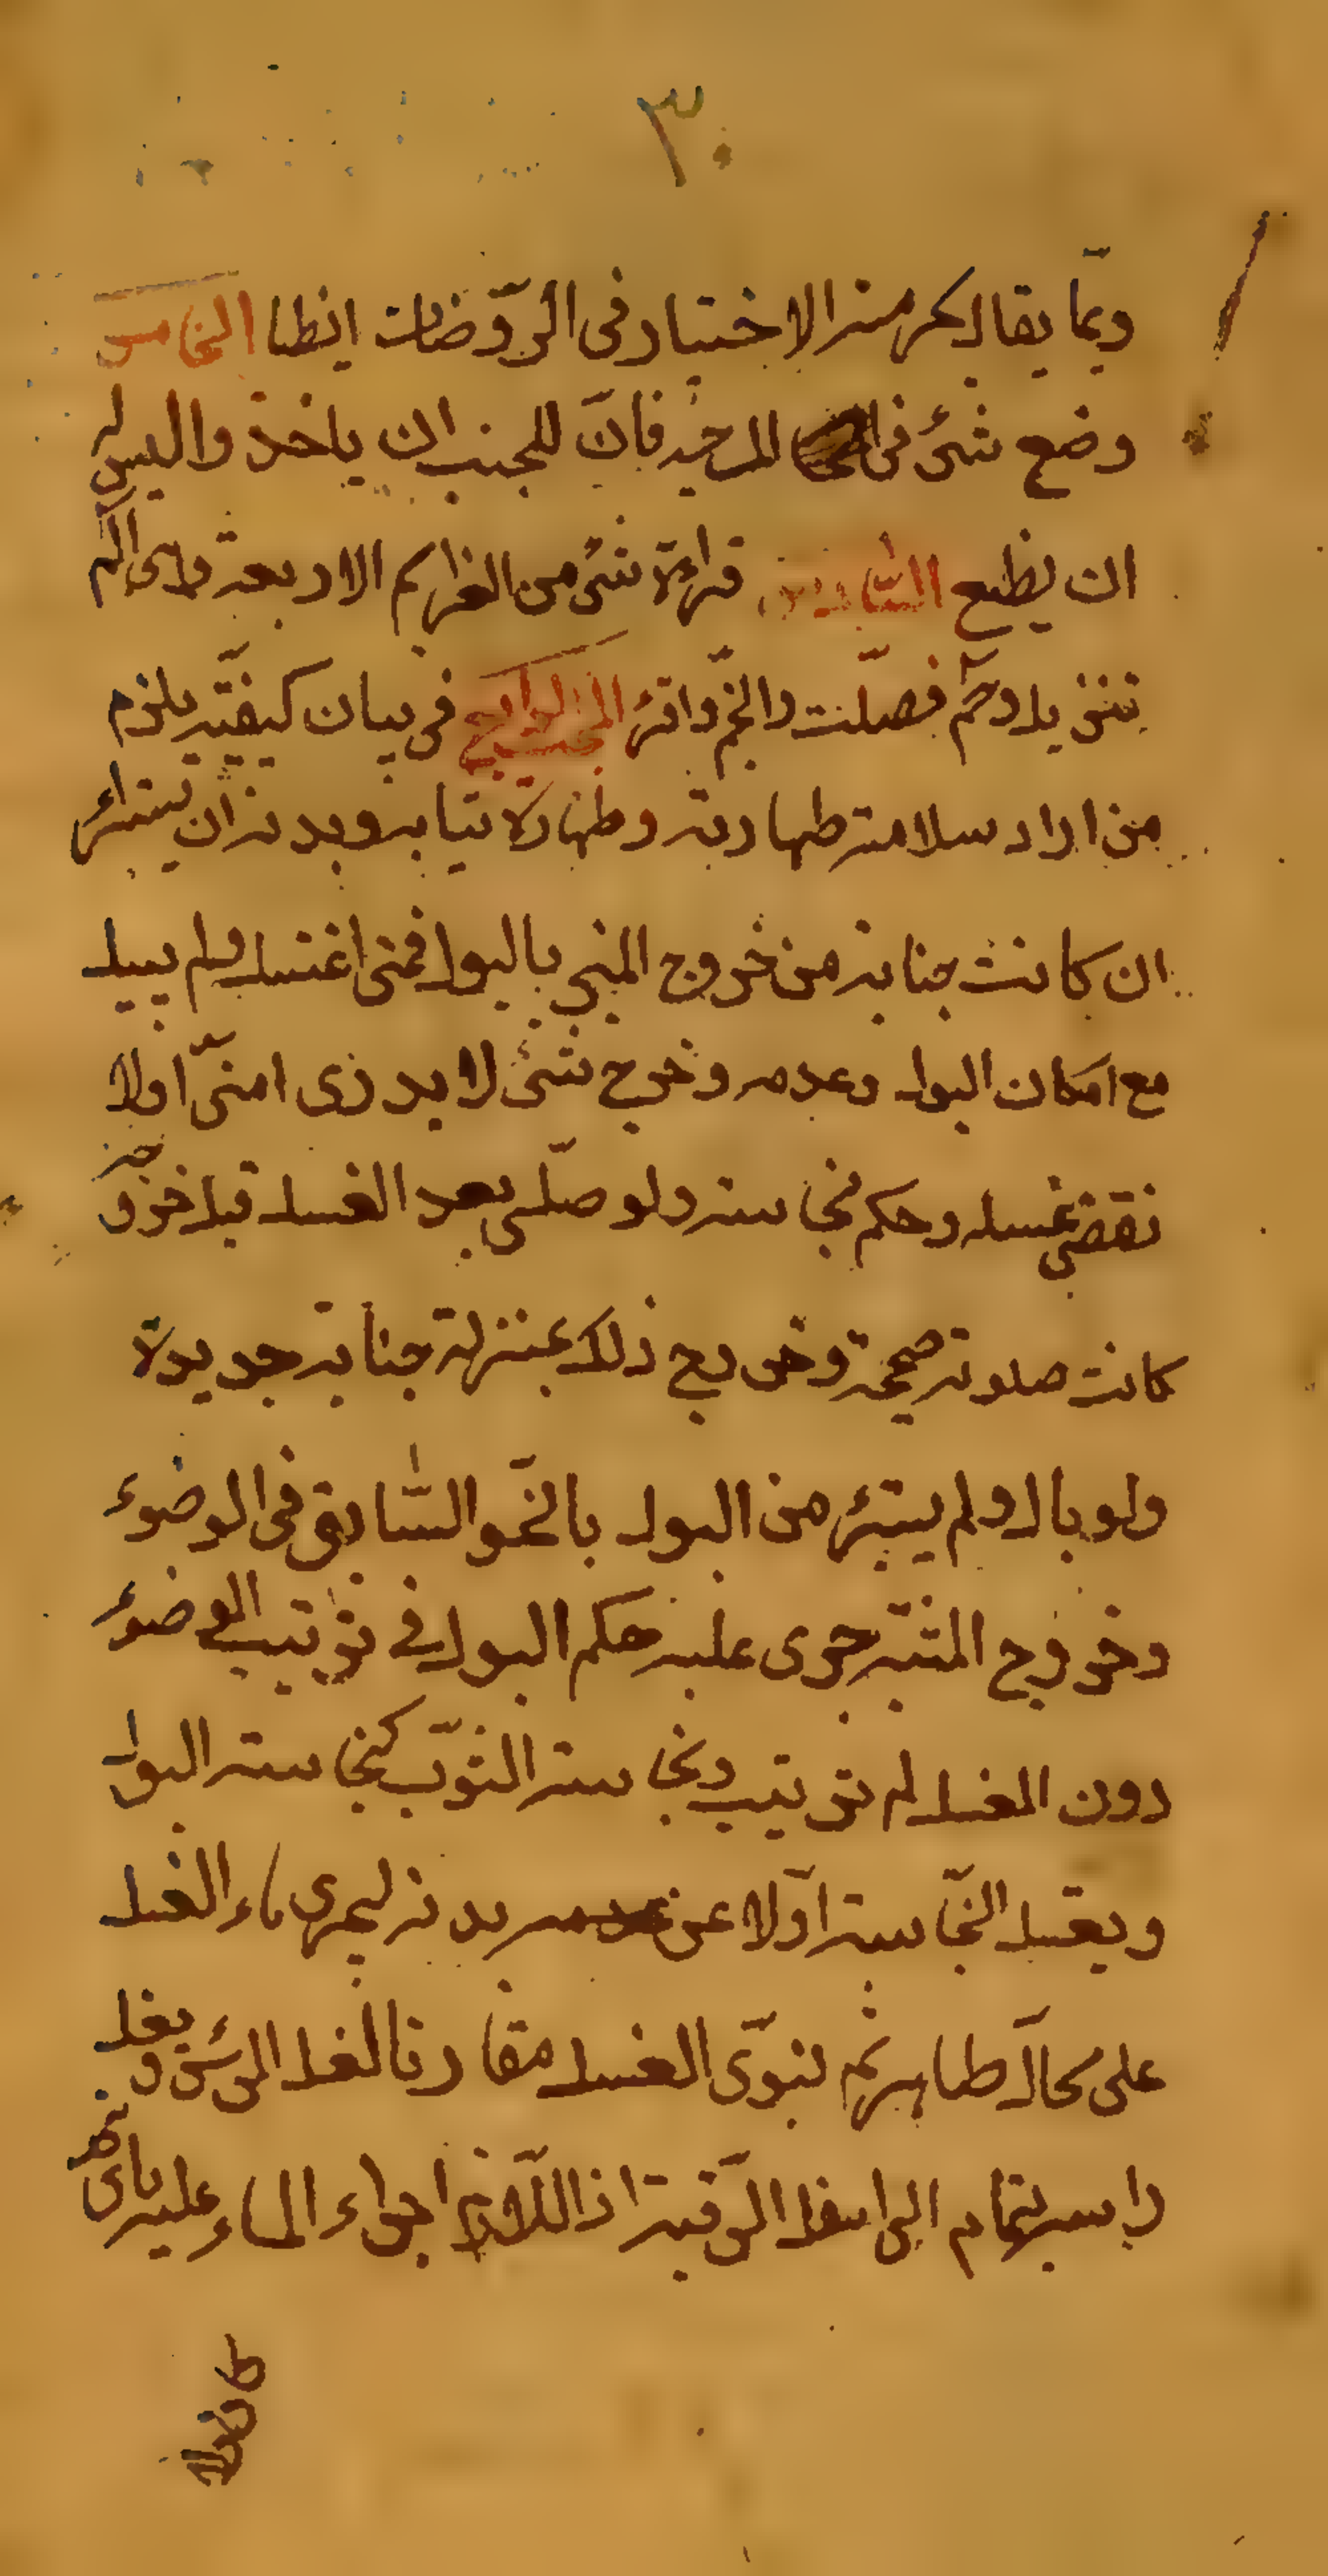 ٣٠
وبما يقال بكرمنه الاختيار في الروضات ايضا الخامس
وضع شئ في المسجد فان للجنب ان ياخذ وليس له
ان يضع السادس قراءة شئ من العزايم الاربعة وهى الم
تنزيل وحم فصلت والنجم واقرء المبحث الرابع في بيان كيفيته يلزم
من اراد سلامة طهارته وطهارة ثيابه وبدنه ان يستبرء
ان كانت جنابته من خروج المني بالبول فمتى اغتسل ولم يبل
مع امكان البول وعدمه وخرج شئ لا يدرى امنىّ اولا
نقض غسله وحكم نجاسته ولو صلّى بعد الغسل قبل خروج
كانت صلوته صحيحة وخروج ذلك بمنزلة جنابة جديدة
ولو بال ولم يستبرء من البول بالنحو السّابق في الوضوء
وخروج المشتبه جرى عليه حكم البول في ترتيب الوضوء
دون الغسل لم ترتيب ونجاسة الثوب كنجاسة البول
ويغسل النجاسة اوّلا عن بدنه ليجرى ماء الغسل
على محالّ طاهر ثم ينوى الغسل مقارنا لغسل الرئس ويغسل
راسه بتمام الى اسفل الرقبة اذ اللازم اجراء الماء عليه باى